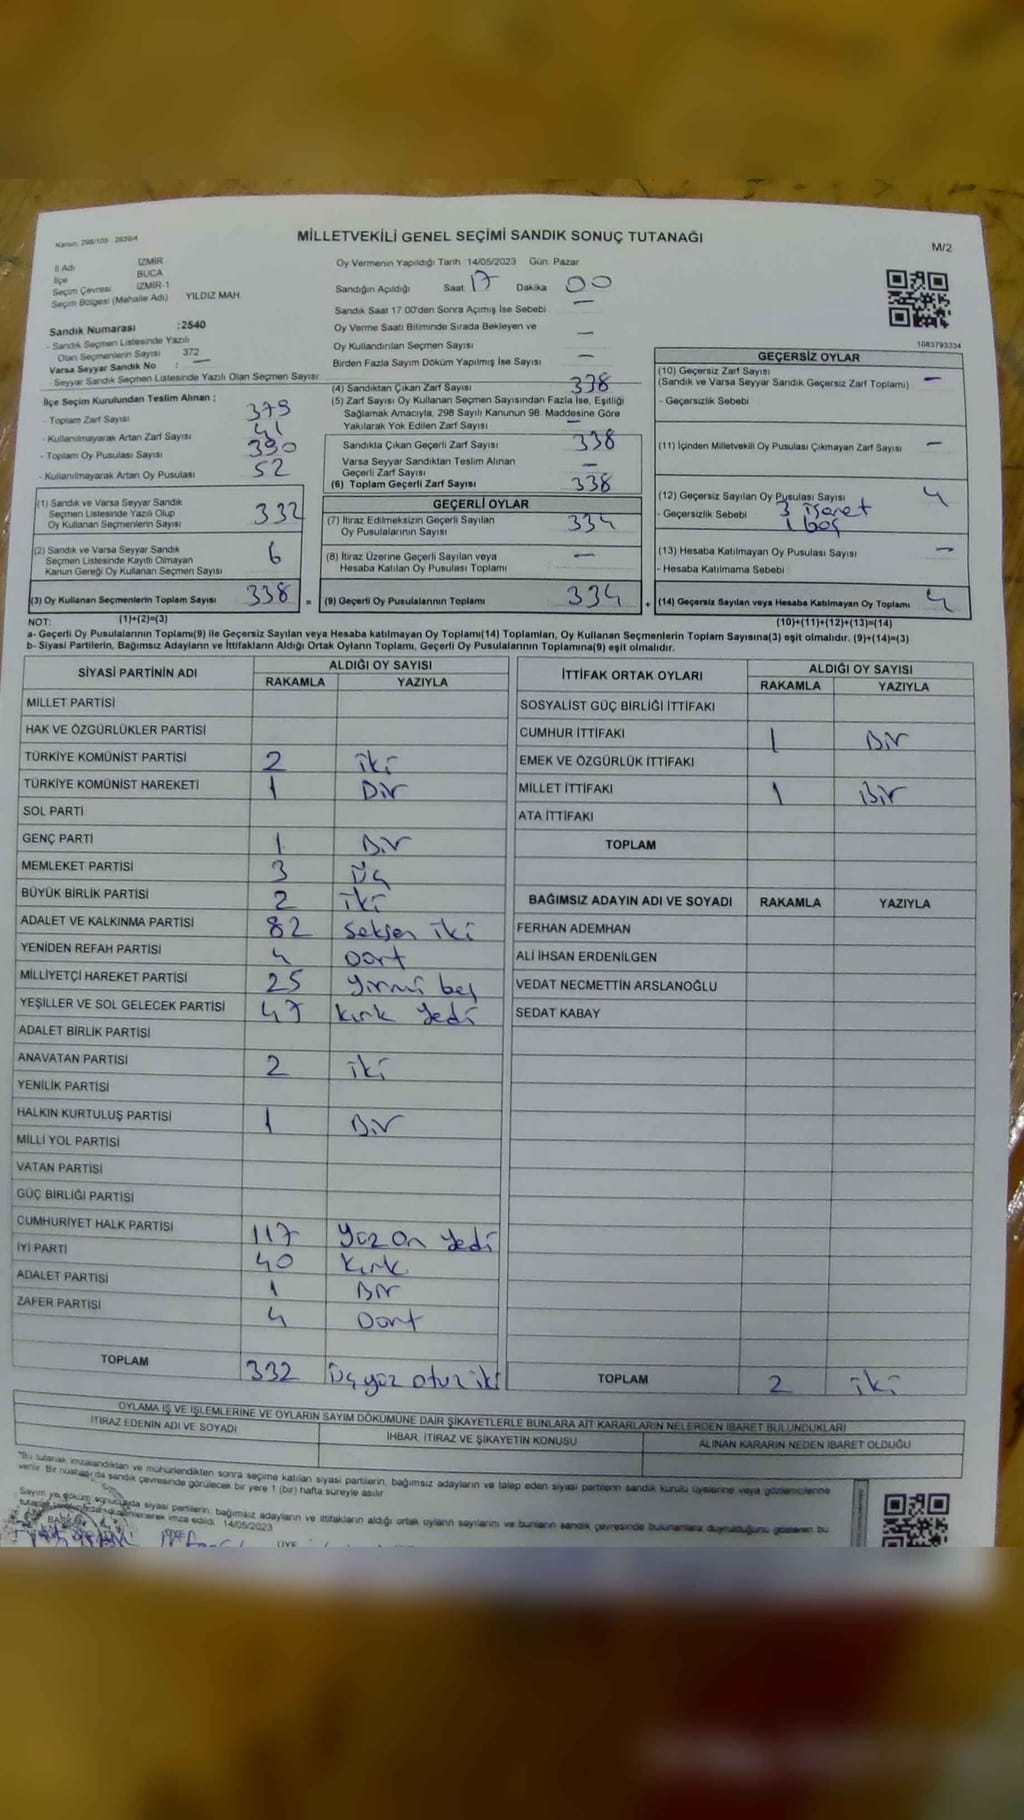 Kanun: 298/105 2839/4
MİLLETVEKİLİ GENEL SEÇİMİ SANDIK SONUÇ TUTANAĞI
M/2
İl Adı İZMİR
İlçe BUCA
Seçim Çevresi İZMİR-1
Seçim Bölgesi (Mahalle Adı) YILDIZ MAH
Oy Vermenin Yapıldığı Tarih :14/05/2023 Gün: Pazar
Sandığın Açıldığı Saat 17 Dakika 00
Sandık Saat 17:00'den Sonra Açımış İse Sebebi —
Oy Verme Saati Bitiminde Sırada Bekleyen ve
Oy Kullandırılan Seçmen Sayısı —
Birden Fazla Sayım Döküm Yapılmış İse Sayısı —
1083793334
Sandık Numarası :2540
- Sandık Seçmen Listesinde Yazılı
Olan Seçmenlerin Sayısı 372
Varsa Seyyar Sandık No : —
- Seyyar Sandık Seçmen Listesinde Yazılı Olan Seçmen Sayısı:
İlçe Seçim Kurulundan Teslim Alınan ;
- Toplam Zarf Sayısı 379
- Kullanılmayarak Artan Zarf Sayısı 41
- Toplam Oy Pusulası Sayısı 390
- Kullanılmayarak Artan Oy Pusulası 52
(1) Sandık ve Varsa Seyyar Sandık
Seçmen Listesinde Yazılı Olup
Oy Kullanan Seçmenlerin Sayısı 332
(2) Sandık ve Varsa Seyyar Sandık
Seçmen Listesinde Kayıtlı Olmayan
Kanun Gereği Oy Kullanan Seçmen Sayısı 6
(3) Oy Kullanan Seçmenlerin Toplam Sayısı 338 =
(4) Sandıktan Çıkan Zarf Sayısı 338
(5) Zarf Sayısı Oy Kullanan Seçmen Sayısından Fazla İse, Eşitliği
Sağlamak Amacıyla, 298 Sayılı Kanunun 98. Maddesine Göre
Yakılarak Yok Edilen Zarf Sayısı —
Sandıkta Çıkan Geçerli Zarf Sayısı 338
Varsa Seyyar Sandıktan Teslim Alınan
Geçerli Zarf Sayısı —
(6) Toplam Geçerli Zarf Sayısı 338
GEÇERLİ OYLAR
(7) İtiraz Edilmeksizin Geçerli Sayılan
Oy Pusulalarının Sayısı 334
(8) İtiraz Üzerine Geçerli Sayılan veya
Hesaba Katılan Oy Pusulası Toplamı —
(9) Geçerli Oy Pusulalarının Toplamı 334 +
GEÇERSİZ OYLAR
(10) Geçersiz Zarf Sayısı
(Sandık ve Varsa Seyyar Sandık Geçersiz Zarf Toplamı) —
- Geçersizlik Sebebi
(11) İçinden Milletvekili Oy Pusulası Çıkmayan Zarf Sayısı —
(12) Geçersiz Sayılan Oy Pusulası Sayısı 4
- Geçersizlik Sebebi 3 işaret
1 boş
(13) Hesaba Katılmayan Oy Pusulası Sayısı —
- Hesaba Katılmama Sebebi
(14) Geçersiz Sayılan veya Hesaba Katılmayan Oy Toplamı 4
NOT: (1)+(2)=(3) (10)+(11)+(12)+(13)=(14)
a- Geçerli Oy Pusulalarının Toplamı(9) ile Geçersiz Sayılan veya Hesaba katılmayan Oy Toplamı(14) Toplamları, Oy Kullanan Seçmenlerin Toplam Sayısına(3) eşit olmalıdır. (9)+(14)=(3)
b- Siyasi Partilerin, Bağımsız Adayların ve İttifakların Aldığı Ortak Oyların Toplamı, Geçerli Oy Pusulalarının Toplamına(9) eşit olmalıdır.
SİYASİ PARTİNİN ADI ALDIĞI OY SAYISI
RAKAMLA YAZIYLA
MİLLET PARTİSİ
HAK VE ÖZGÜRLÜKLER PARTİSİ
TÜRKİYE KOMÜNİST PARTİSİ 2 iki
TÜRKİYE KOMÜNİST HAREKETİ 1 Bir
SOL PARTİ
GENÇ PARTİ 1 Bir
MEMLEKET PARTİSİ 3 Üç
BÜYÜK BİRLİK PARTİSİ 2 iki
ADALET VE KALKINMA PARTİSİ 82 seksen iki
YENİDEN REFAH PARTİSİ 4 Dört
MİLLİYETÇİ HAREKET PARTİSİ 25 yirmi beş
YEŞİLLER VE SOL GELECEK PARTİSİ 47 kırk yedi
ADALET BİRLİK PARTİSİ
ANAVATAN PARTİSİ 2 iki
YENİLİK PARTİSİ
HALKIN KURTULUŞ PARTİSİ 1 Bir
MİLLİ YOL PARTİSİ
VATAN PARTİSİ
GÜÇ BİRLİĞİ PARTİSİ
CUMHURİYET HALK PARTİSİ 117 yüz on yedi
İYİ PARTİ 40 kırk
ADALET PARTİSİ 1 Bir
ZAFER PARTİSİ 4 Dört
TOPLAM 332 Üçyüz otuz iki
İTTİFAK ORTAK OYLARI ALDIĞI OY SAYISI
RAKAMLA YAZIYLA
SOSYALİST GÜÇ BİRLİĞİ İTTİFAKI
CUMHUR İTTİFAKI 1 Bir
EMEK VE ÖZGÜRLÜK İTTİFAKI
MİLLET İTTİFAKI 1 Bir
ATA İTTİFAKI
TOPLAM
BAĞIMSIZ ADAYIN ADI VE SOYADI RAKAMLA YAZIYLA
FERHAN ADEMHAN
ALİ İHSAN ERDENİLGEN
VEDAT NECMETTİN ARSLANOĞLU
SEDAT KABAY
TOPLAM 2 iki
OYLAMA İŞ VE İŞLEMLERİNE VE OYLARIN SAYIM DÖKÜMÜNE DAİR ŞİKAYETLERLE BUNLARA AİT KARARLARIN NELERDEN İBARET BULUNDUKLARI
İTİRAZ EDENİN ADI VE SOYADI İHBAR, İTİRAZ VE ŞİKAYETİN KONUSU ALINAN KARARIN NEDEN İBARET OLDUĞU
*Bu tutanak imzalandıktan ve mühürlendikten sonra seçime katılan siyasi partilerin, bağımsız adayların ve talep eden siyasi partilerin sandık kurulu üyelerine veya gözlemcilerine
verilir. Bir nüshası da sandık çevresinde görülecek bir yere 1 (bir) hafta süreyle asılır
Sayım ve döküm sonucunda siyasi partilerin, bağımsız adayların ve ittifakların aldığı ortak oyların sayılarını ve bunların sandık çevresinde bulunanlara duyrulduğunu gösteren bu
tutanak düzenlenerek imza edildi. 14/05/2023
ÜYE